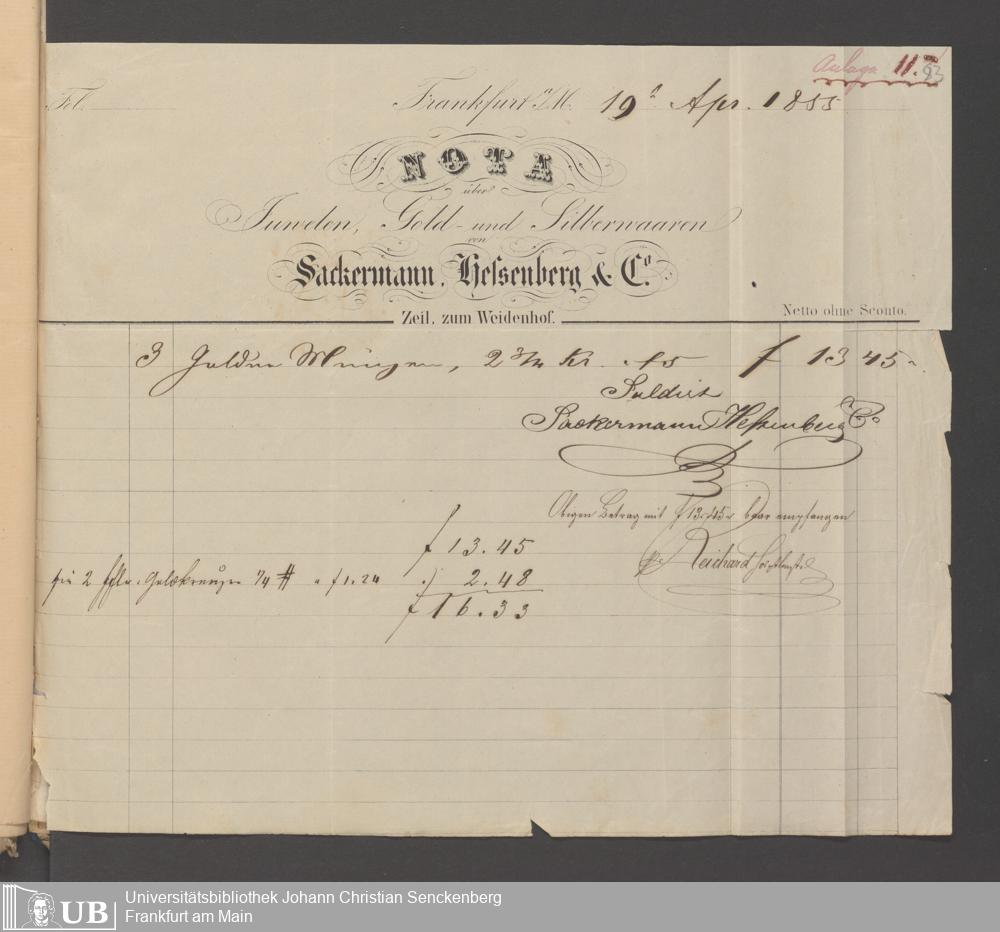 Anlage 11.
93
Fol.
Frankfurt a/M. 19 Apr. 1855
NOTA
über
Juwelen, Gold- und Silberwaaren
von
Sackermann, Hessenberg & Co.
Zeil, zum Weidenhof.
Netto ohne Sconto.
3 Goldne Münzen, 2 3/4 Kr. f 5 f 13 45
Saldirt
Sackermann Hessenberg & Co
Obigen Betrag mit f 13.45 baar empfangen
Reichard
f 13.45
für 2 Goldkreuzer 1/4 # a f 1.24 2.48
f 16.33
Universitätsbibliothek Johann Christian Senckenberg
UB Frankfurt am Main